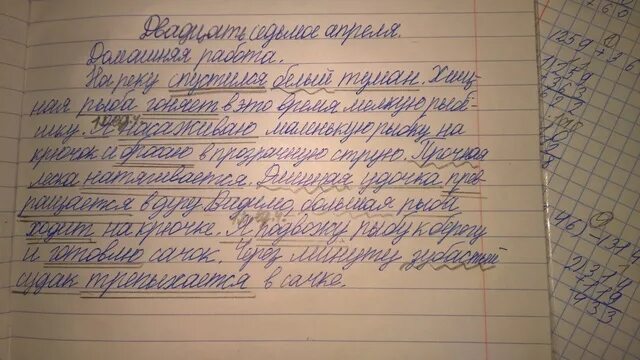 Двадцать седьмое апреля.
Домашняя работа.
На реку спустился белый туман. Хищ-
ная рыба гоняет в это время мелкую рыбё-
шку. Я насаживаю маленькую рыбку на
крючок и бросаю в прозрачную струю. Прочная
леска натягивается. Длинная удочка пре-
вращается в дугу. Видимо, большая рыба
ходит на крючке. Я подвожу рыбу к берегу
и готовлю сачок. Через минуту зубастый
судак трепыхается в сачке.